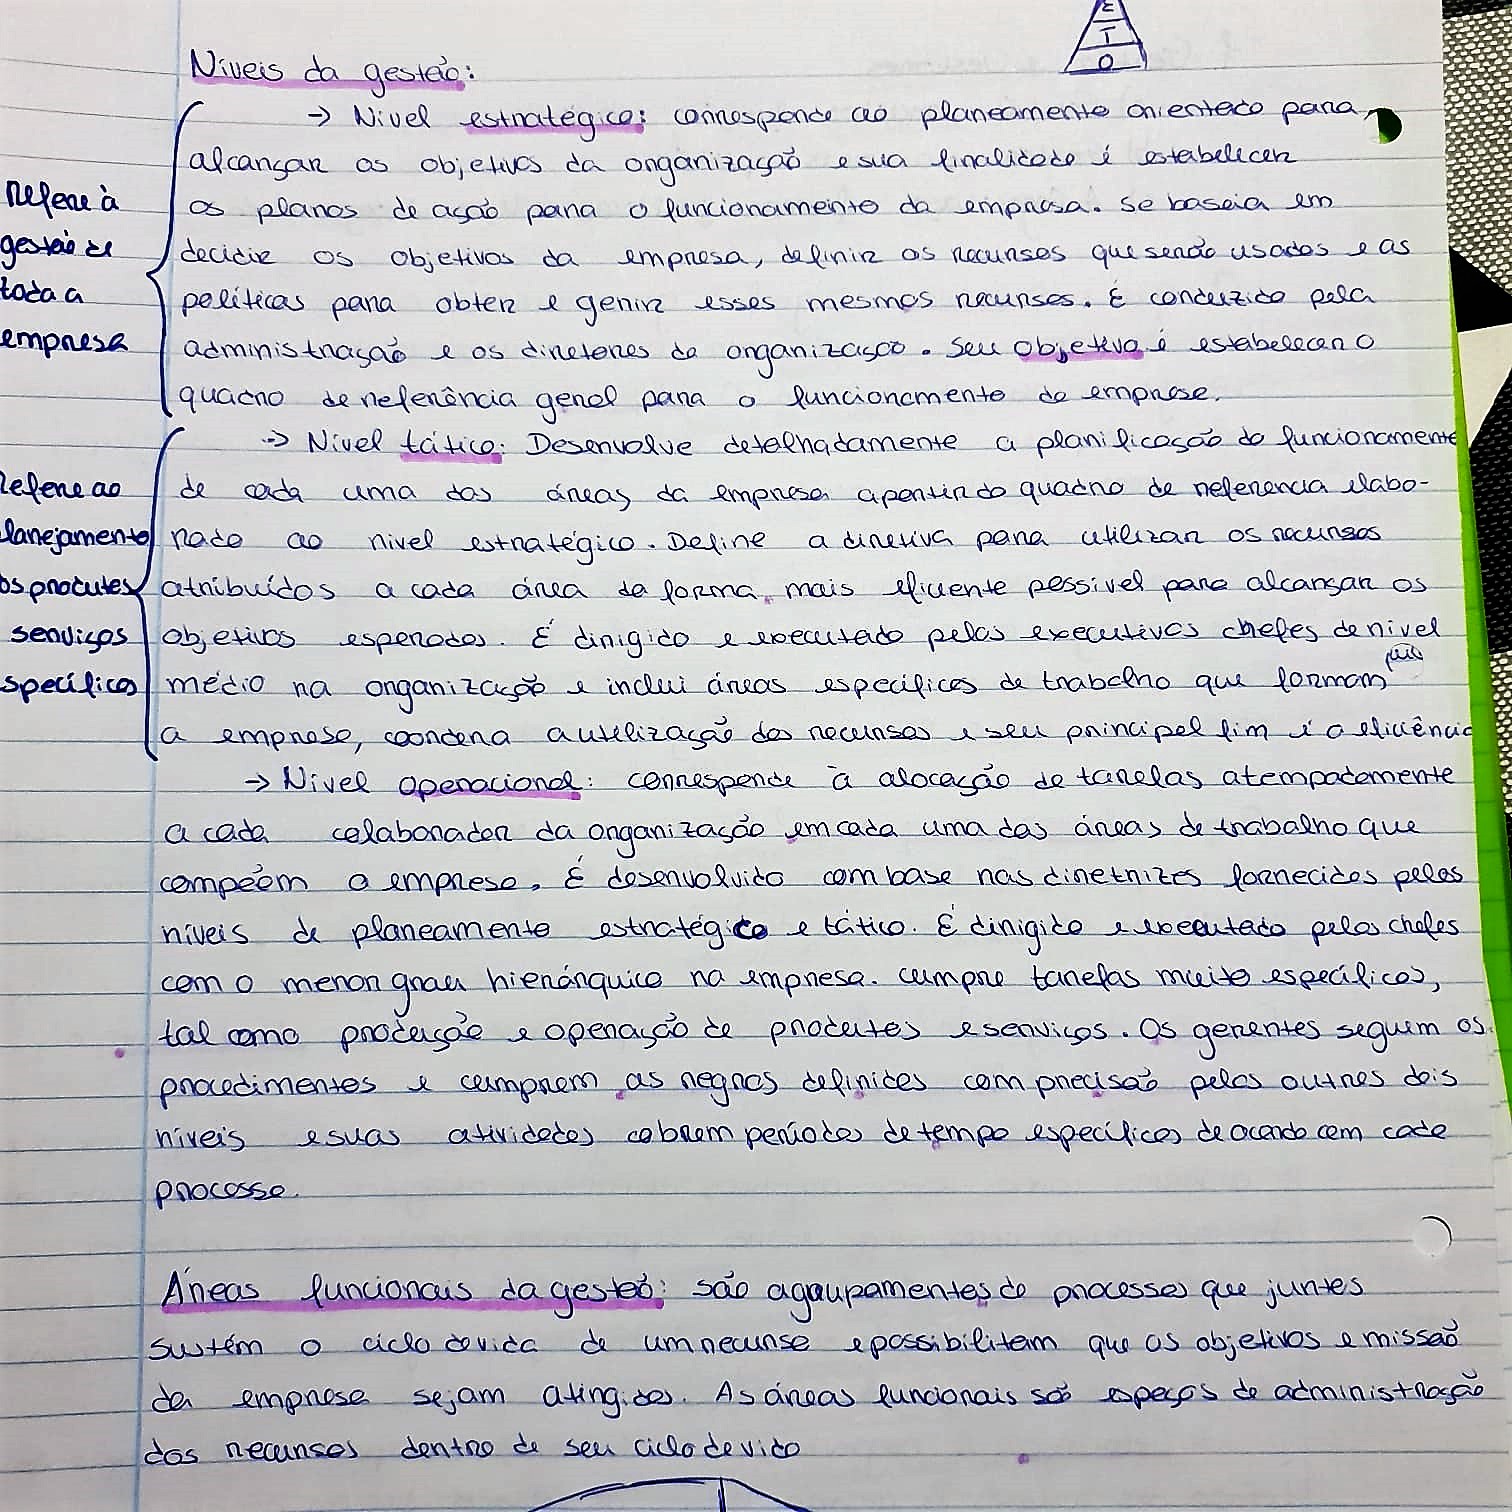 E
T
O
Níveis da gestão:
→ Nível estratégico: corresponde ao planeamento orientado para
alcançar os objetivos da organização e sua finalidade é estabelecer
os planos de ação para o funcionamento da empresa. Se baseia em
decidir os objetivos da empresa, definir os recursos que serão usados e as
políticas para obter e gerir esses mesmos recursos. É conduzido pela
administração e os diretores da organização. Seu objetivo é estabelecer o
quadro de referência geral para o funcionamento da empresa.
Refere à
gestão de
toda a
empresa
→ Nível tático: Desenvolve detalhadamente a planificação do funcionamento
de cada uma das áreas da empresa a partir do quadro de referencia elabo-
rado ao nivel estratégico. Define a diretiva para utilizar os recursos
atribuídos a cada área da forma mais eficiente possivel para alcançar os
objetivos esperados. É dirigido e executado pelos executivos chefes de nivel
médio na organização e inclui áreas específicas de trabalho que formam
a empresa, coordena a utilização dos recursos e seu principal fim é a eficiência
refere ao
lanejamento
os produtos
serviços
specíficos
→ Nível operacional: corresponde à alocação de tarefas atempadamente
a cada colaborador da organização em cada uma das áreas de trabalho que
compõem a empresa. É desenvolvido com base nas diretrizes fornecidas pelos
níveis de planeamento estratégico e tático. É dirigido e executado pelos chefes
com o menor grau hierárquico na empresa. Cumpre tarefas muito específicas,
tal como produção e operação de produtos e serviços. Os gerentes seguem os
procedimentos e cumprem as regras definidas com precisão pelos outros dois
níveis e suas atividades cobrem períodos de tempo específicos de acordo com cada
processo.
Áreas funcionais da gestão: são agrupamentos de processos que juntos
sustém o ciclo de vida de um recurso e possibilitam que os objetivos e missão
da empresa sejam atingidos. As áreas funcionais são espaços de administração
dos recursos dentro de seu ciclo de vida